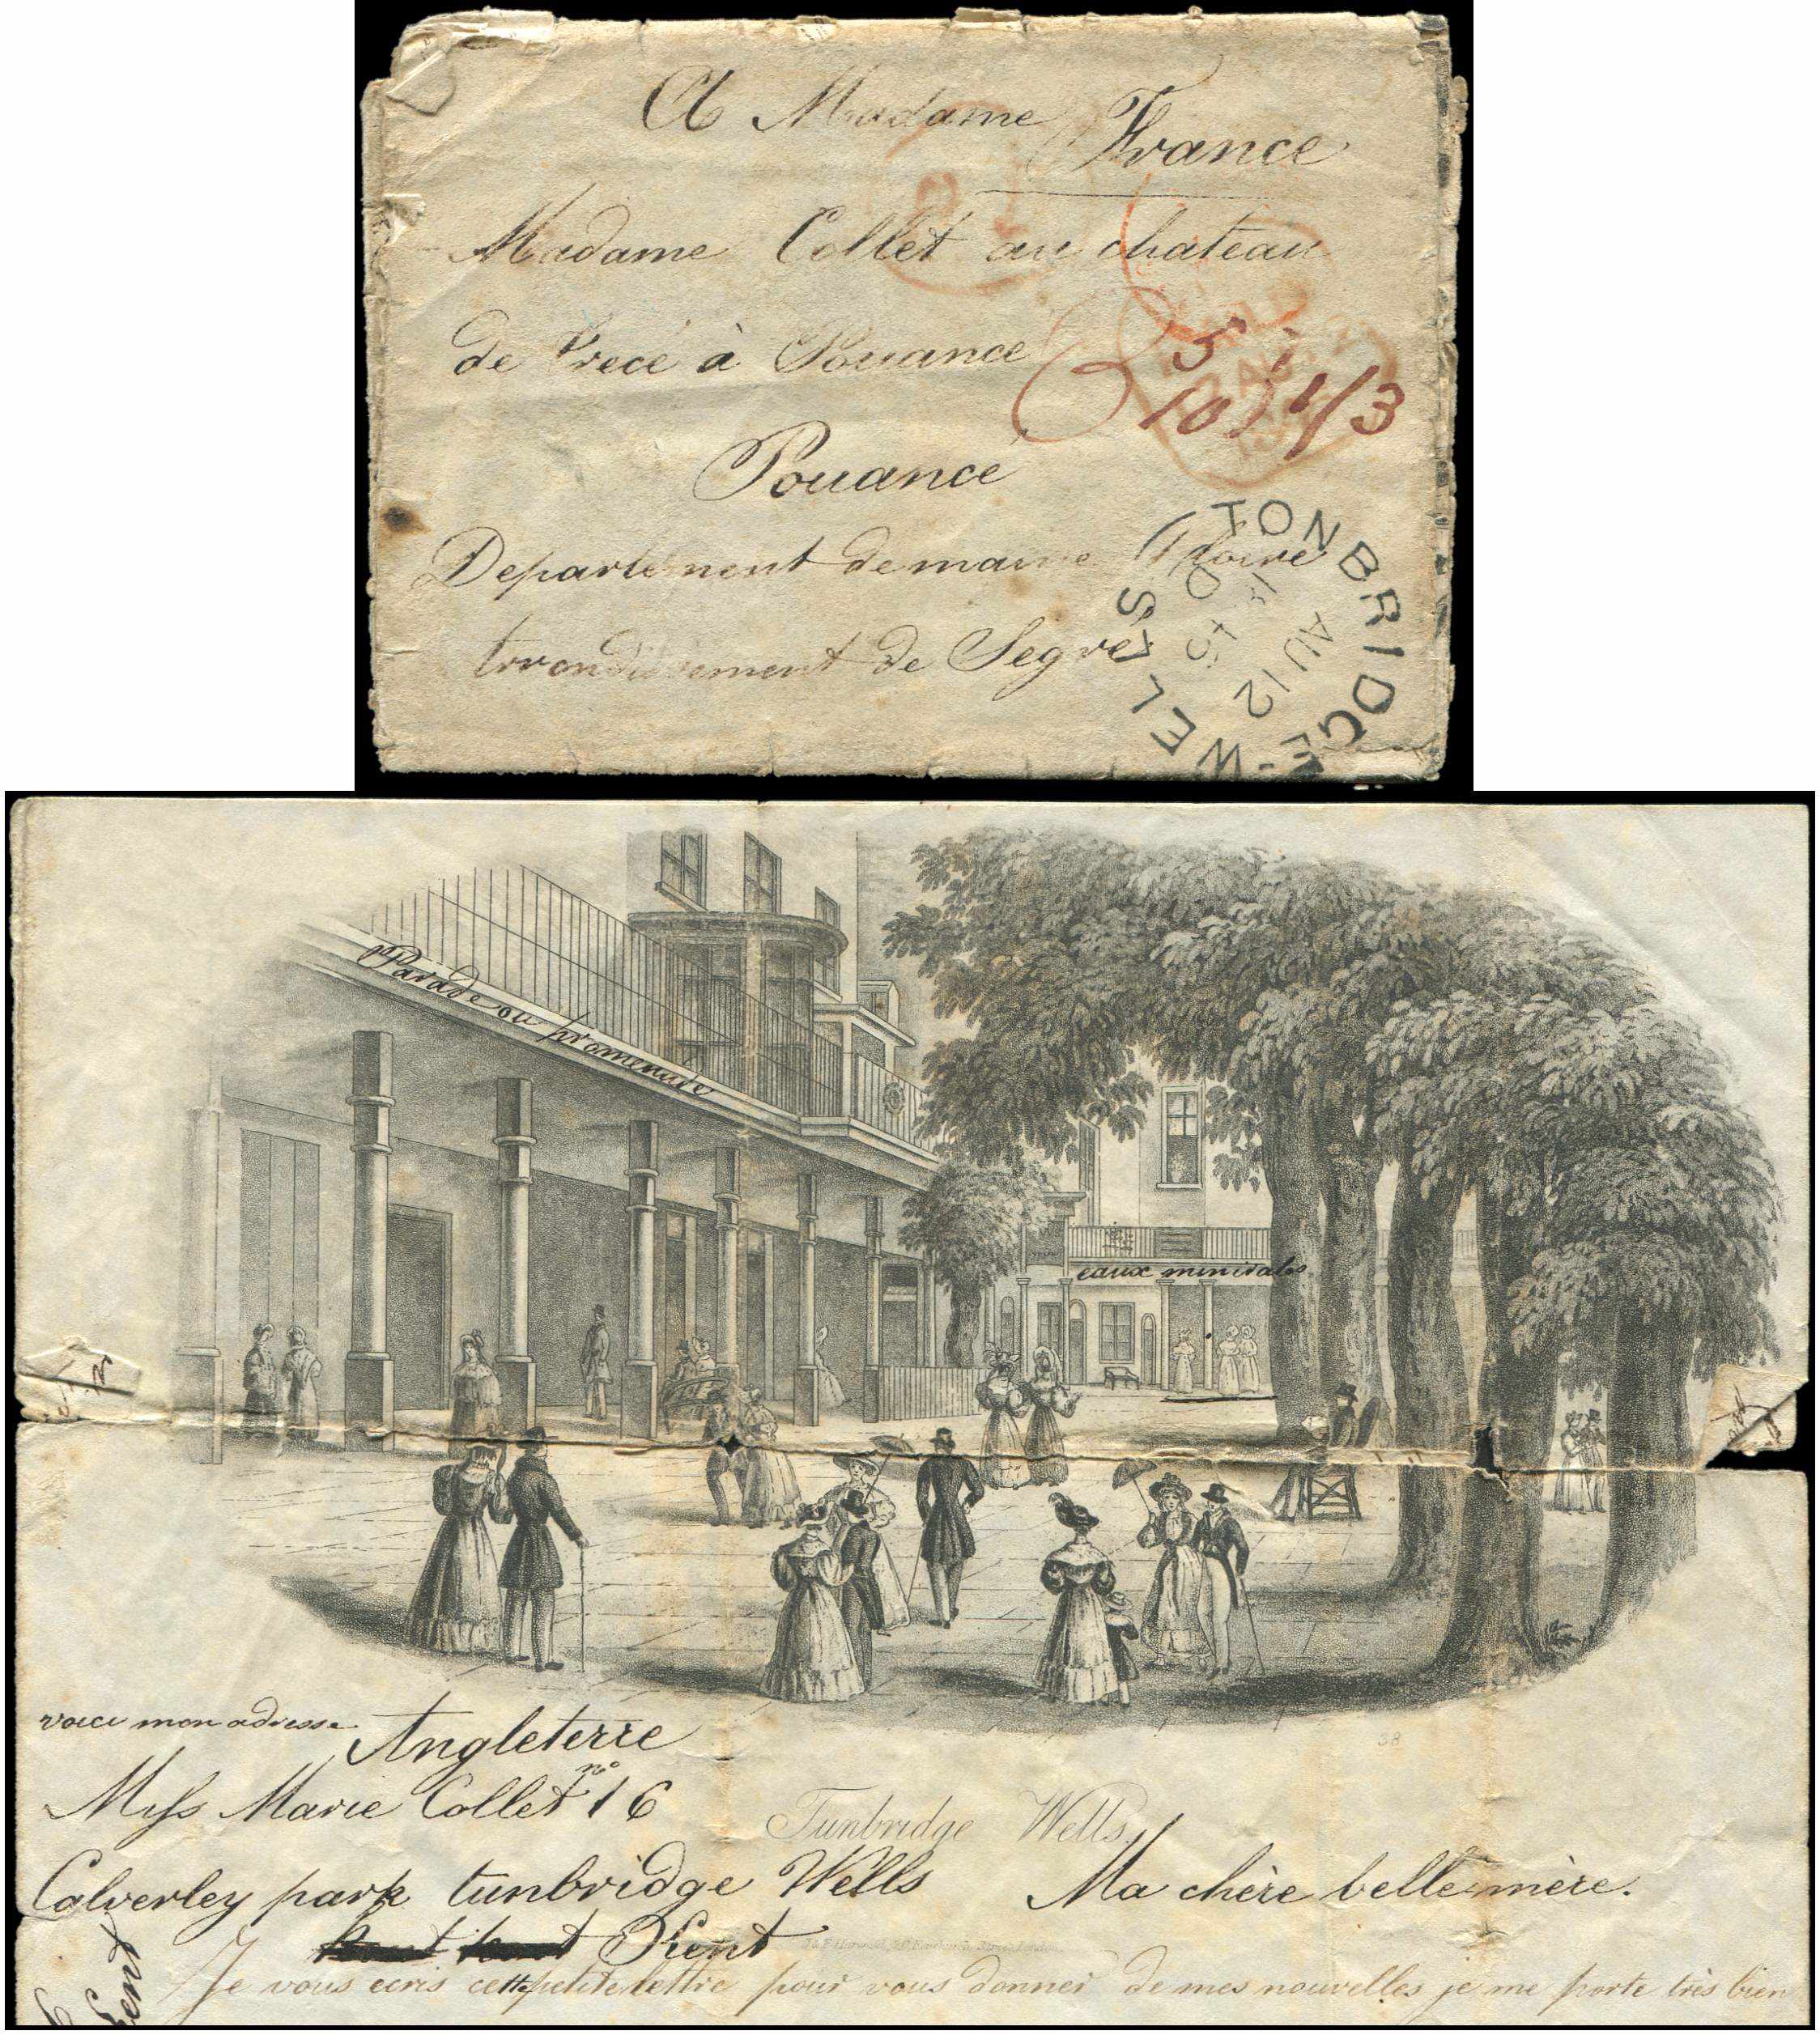 A Madame
France
Madame Collet au chateau
de Precé à Pouance
5
10 1/3
Pouancé
Departement de maine loire
arrondissement de Segré
TONBRIDGE-WELLS
AU 12
Parade ou promenade
eaux minirales
voici mon adresse
Angleterre
Miss Marie Collet no 16
Tunbridge Wells
Calverley park tunbridge Wells
Ma chère belle mère.
Kent
Je vous ecris cette petite lettre pour vous donner de mes nouvelles je me porte très bien
Kent